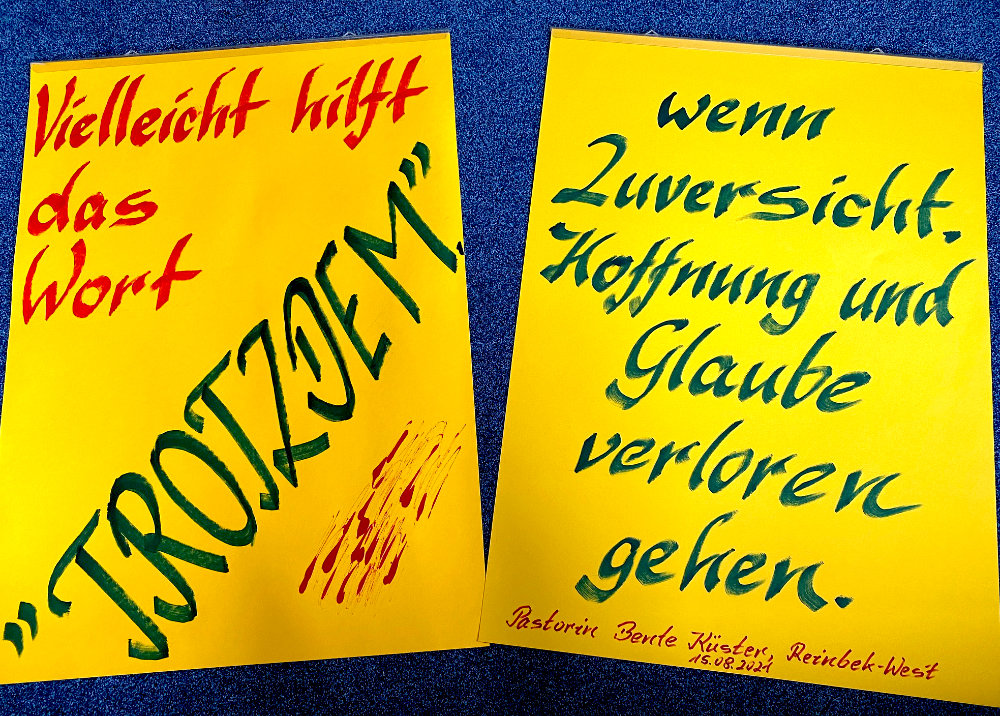 Vielleicht hilft
das
Wort
„TROTZDEM”
wenn
Zuversicht.
Hoffnung und
Glaube
verloren
gehen.
Pastorin Bente Küster, Reinbek-West
15.08.2021